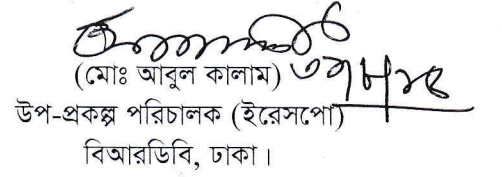 (মোঃ আবুল কালাম)
উপ-প্রকল্প পরিচালক (ইরেসপো)
বিআরডিবি, ঢাকা।